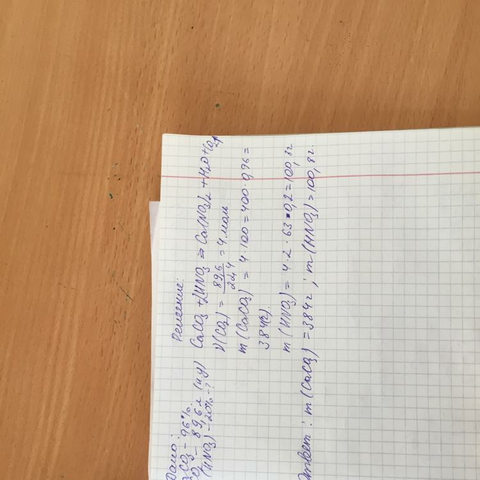 Дано:
CO₃ - 96%
- 89,6 л (н.у)
(HNO₃) - 20% - ?
Решение:
CaCO₃ + 2HNO₃ = Ca(NO₃)₂ + H₂O + CO₂↑
ν(CO₂) = 89,6/22,4 = 4 моль
m(CaCO₃) = 4·100 = 400·0,96 =
384(г)
m(HNO₃) = 4·2·63·0,2 = 100,8г
Ответ: m(CaCO₃) = 384г; m(HNO₃) = 100,8г.